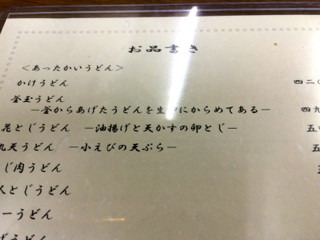 お品書き
<あったかいうどん>
かけうどん 四二
釜玉うどん
―釜からあげたうどんを生 にからめてある― 四九
花とじうどん ―油揚げと天かすの卵とじ― 五
丸天うどん ―小えびの天ぷら― 五
じ肉うどん 五
とじうどん
ーうどん
うどん